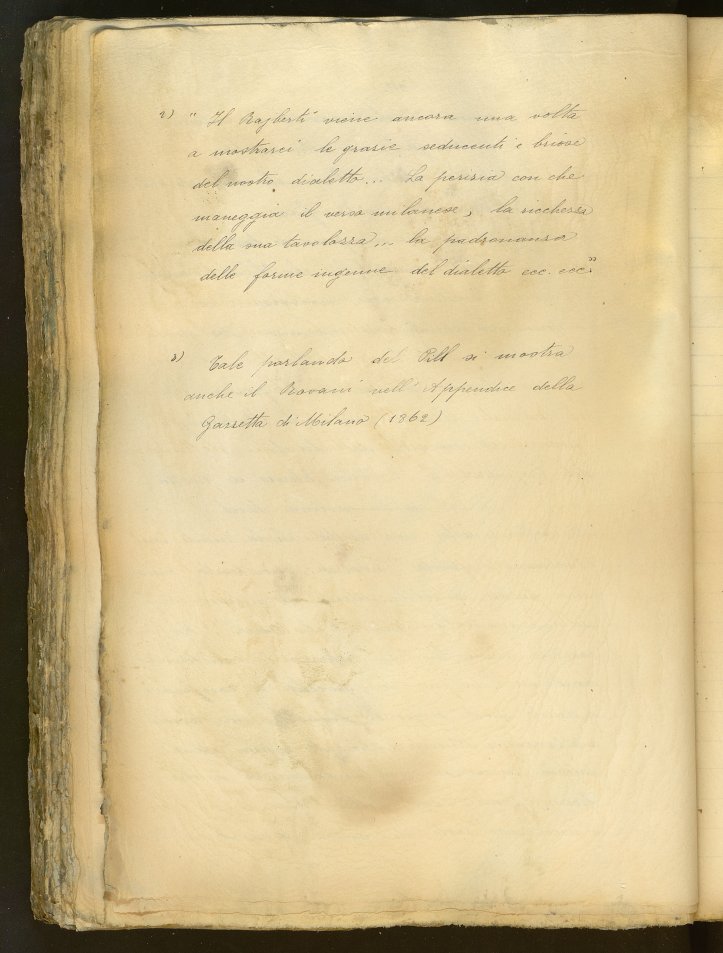 2) " Il Rajberti viene ancora una volta
a mostrarci le grazie seducenti e briose
del nostro dialetto... La perizia con che
maneggia il verso milanese, la ricchezza
della sua tavolozza... la padronanza
delle forme ingenue del dialetto ecc. ecc."
3) Tale parlando del Pill si mostra
anche il Rovani nell'Appendice della
Gazzetta di Milano (1862)